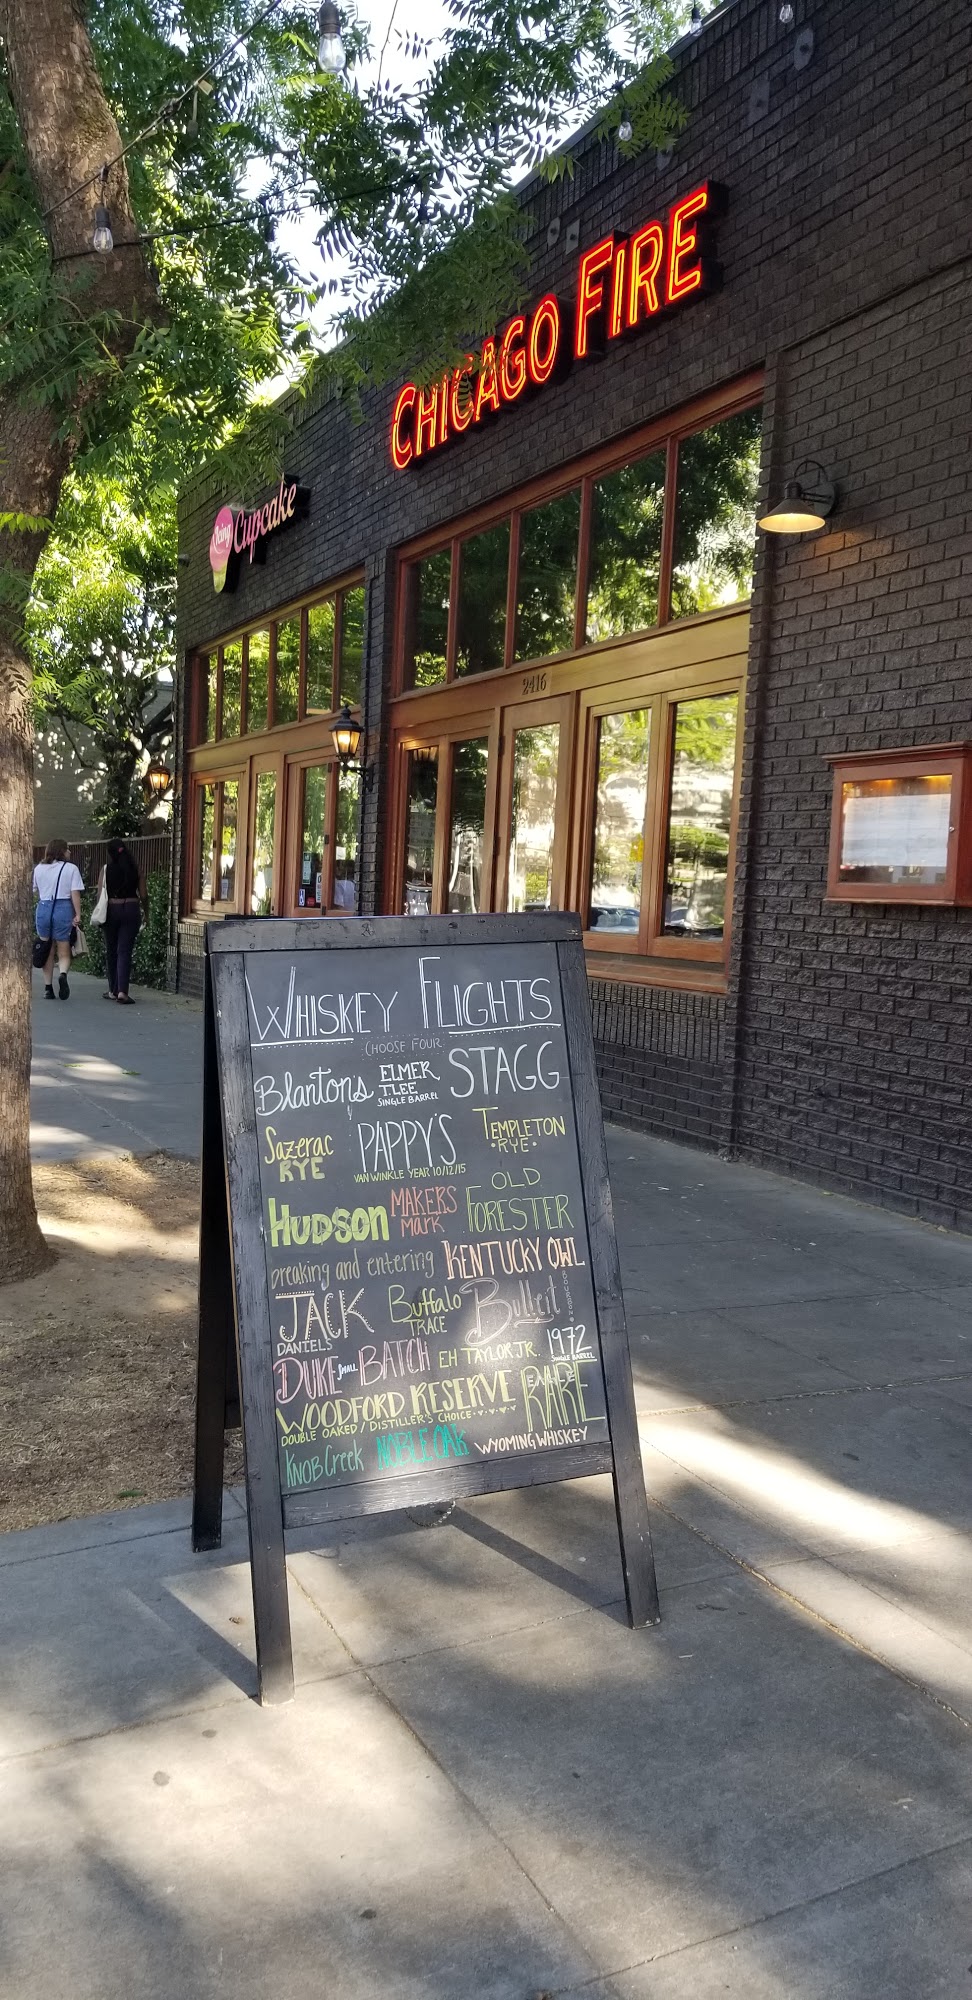 CHICAGO FIRE
Icing Cupcake
2416
WHISKEY FLIGHTS
CHOOSE FOUR
Blanton's ELMER T.LEE SINGLE BARREL STAGG
Sazerac RYE PAPPY'S VAN WINKLE YEAR 10/12/15 TEMPLETON RYE
HUDSON MAKERS MARK OLD FORESTER
breaking and entering KENTUCKY OWL
JACK DANIELS Buffalo TRACE Bulleit BOURBON
DUKE SMALL BATCH EH TAYLOR JR. 1972 SINGLE BARREL
WOODFORD RESERVE DOUBLE OAKED / DISTILLER'S CHOICE EAGLE RARE
KNOB Creek NOBLE OAK WYOMING WHISKEY